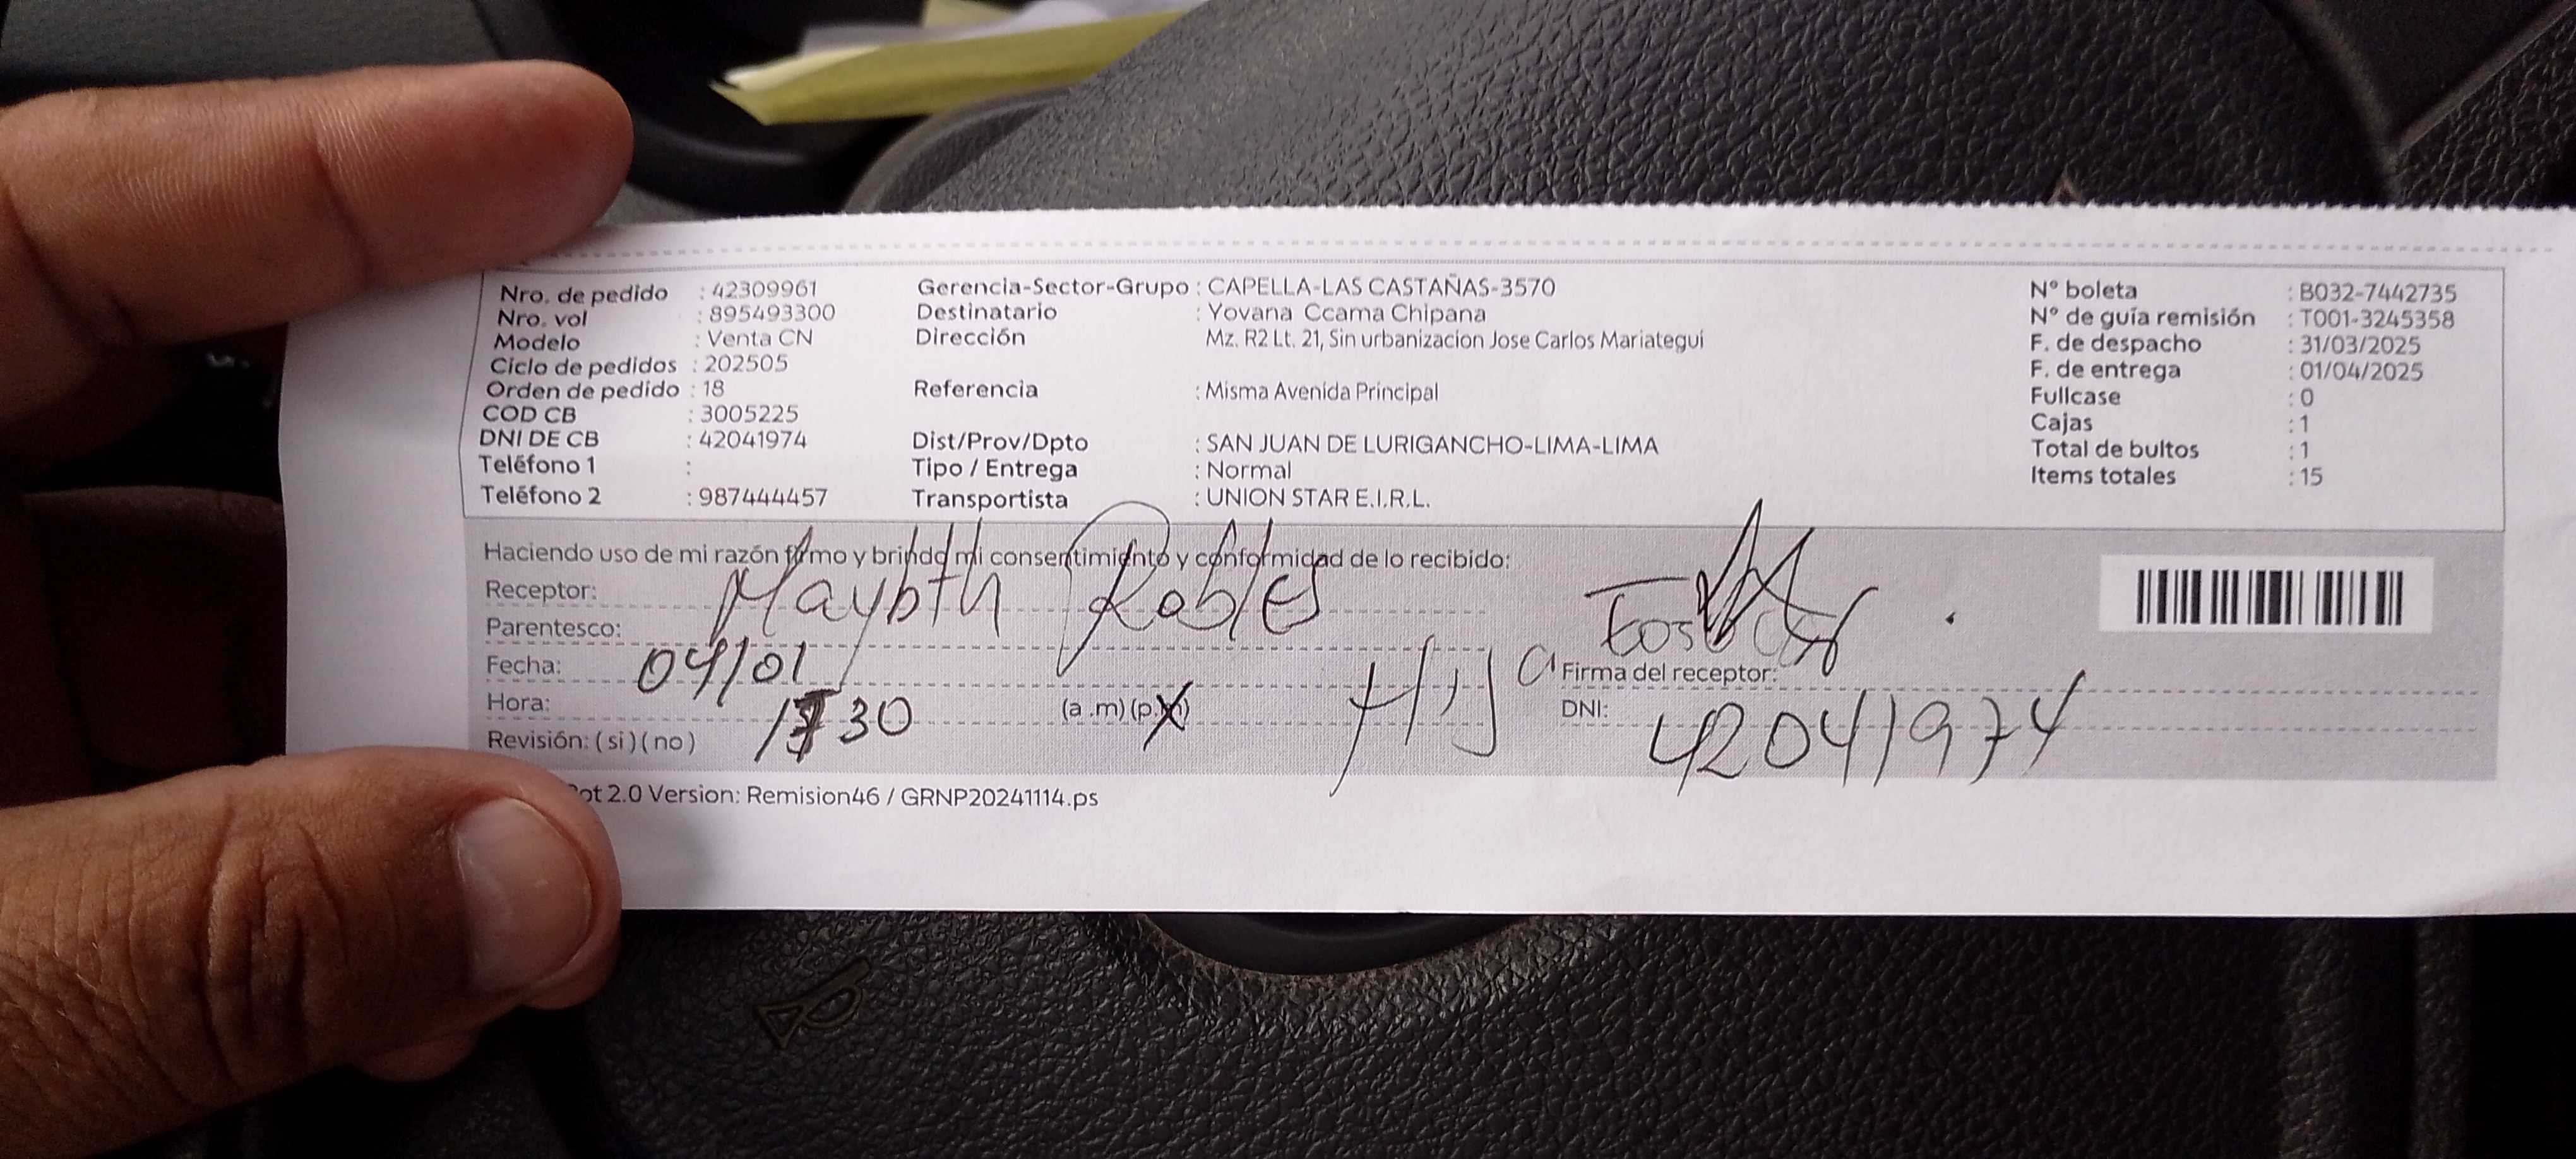 Nro. de pedido : 42309961
Nro. vol : 895493300
Modelo : Venta CN
Ciclo de pedidos : 202505
Orden de pedido : 18
COD CB : 3005225
DNI DE CB : 42041974
Teléfono 1 :
Teléfono 2 : 987444457
Gerencia-Sector-Grupo : CAPELLA-LAS CASTAÑAS-3570
Destinatario : Yovana Ccama Chipana
Dirección Mz. R2 Lt. 21, Sin urbanizacion Jose Carlos Mariategui
Referencia : Misma Avenida Principal
Dist/Prov/Dpto : SAN JUAN DE LURIGANCHO-LIMA-LIMA
Tipo / Entrega : Normal
Transportista : UNION STAR E.I.R.L.
N° boleta : B032-7442735
N° de guía remisión : T001-3245358
F. de despacho : 31/03/2025
F. de entrega : 01/04/2025
Fullcase : 0
Cajas : 1
Total de bultos : 1
Items totales : 15
Haciendo uso de mi razón firmo y brindo mi consentimiento y conformidad de lo recibido:
Receptor: Maybth Robles
Parentesco: Hija
Fecha: 04/01
Hora: 30 (a.m)(p.m)
Revisión: (si)(no)
Firma del receptor:
DNI: 42041974
ot 2.0 Version: Remision46 / GRNP20241114.ps